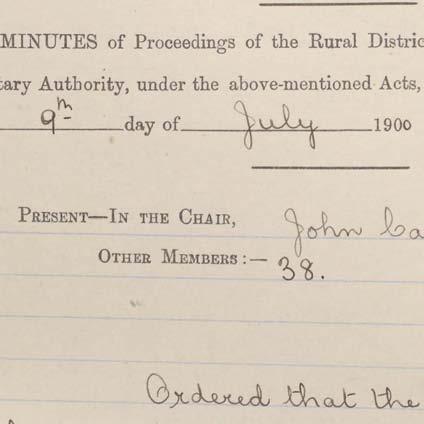 MINUTES of Proceedings of the Rural Distric
tary Authority, under the above-mentioned Acts,
9th day of July 1900
PRESENT—IN THE CHAIR, John Ca
OTHER MEMBERS:— 38.
Ordered that the